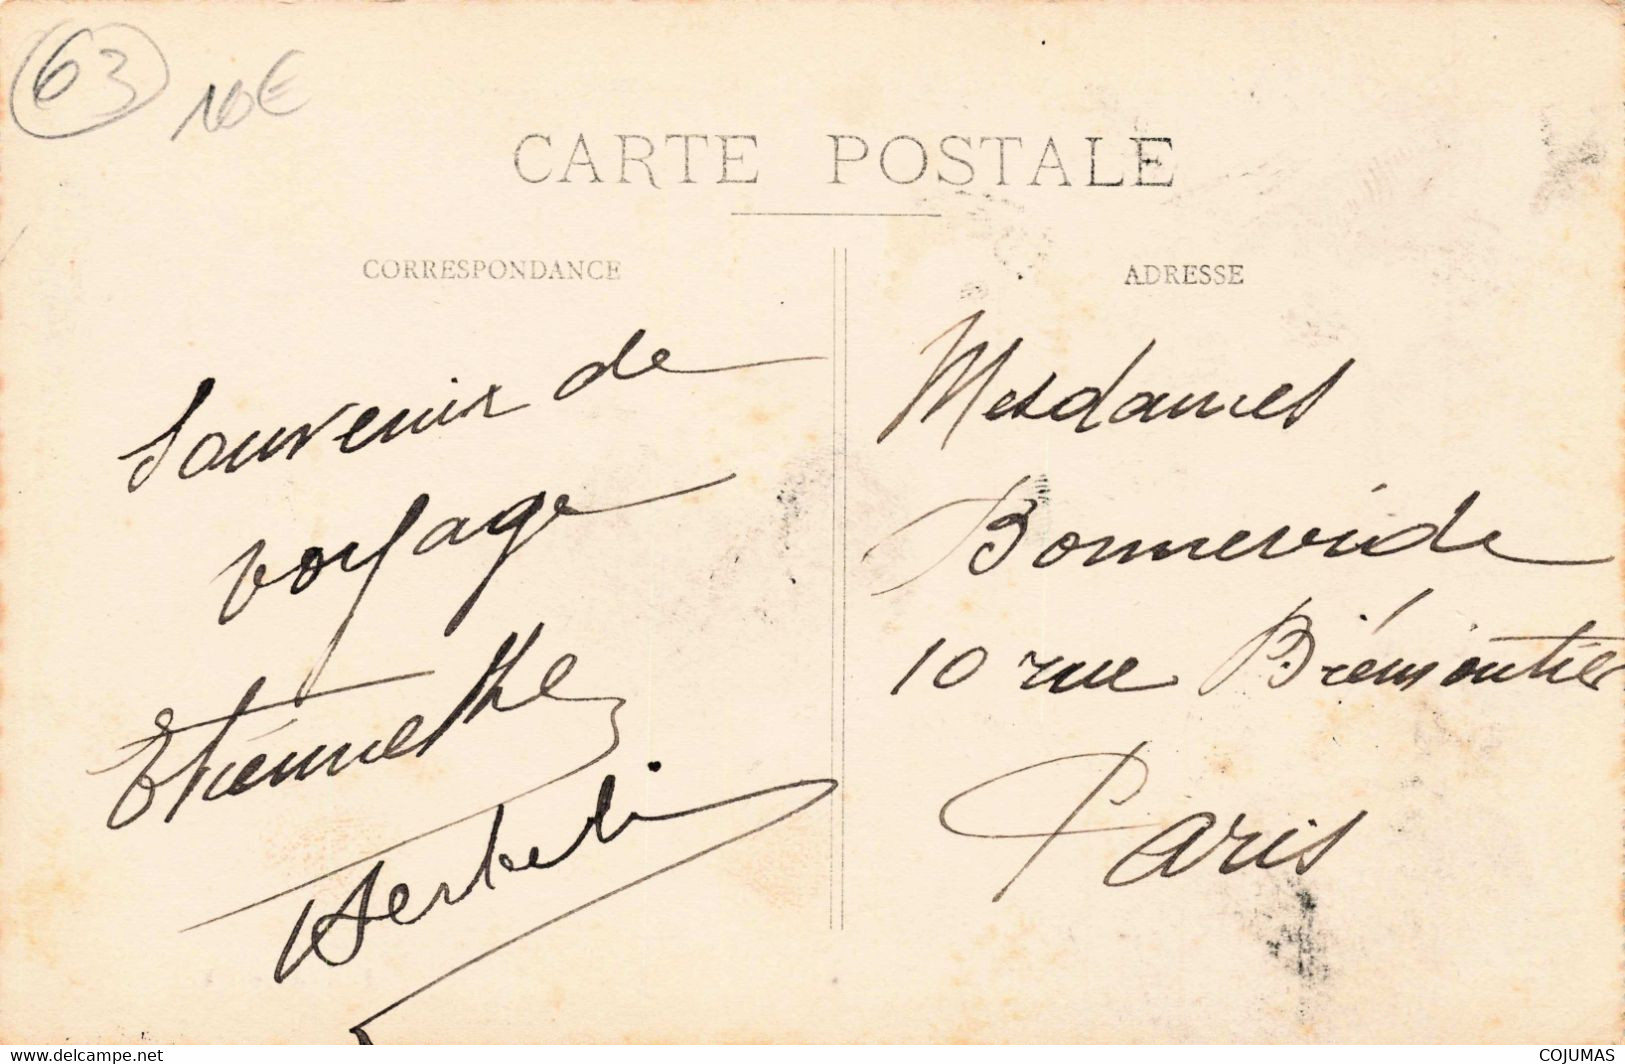 63
10€
CARTE POSTALE
CORRESPONDANCE
ADRESSE
Souvenir de
voyage
Etiennette
Mesdames
Bonnevide
10 rue Brémontier
Paris
www.delcampe.net
COJUMAS